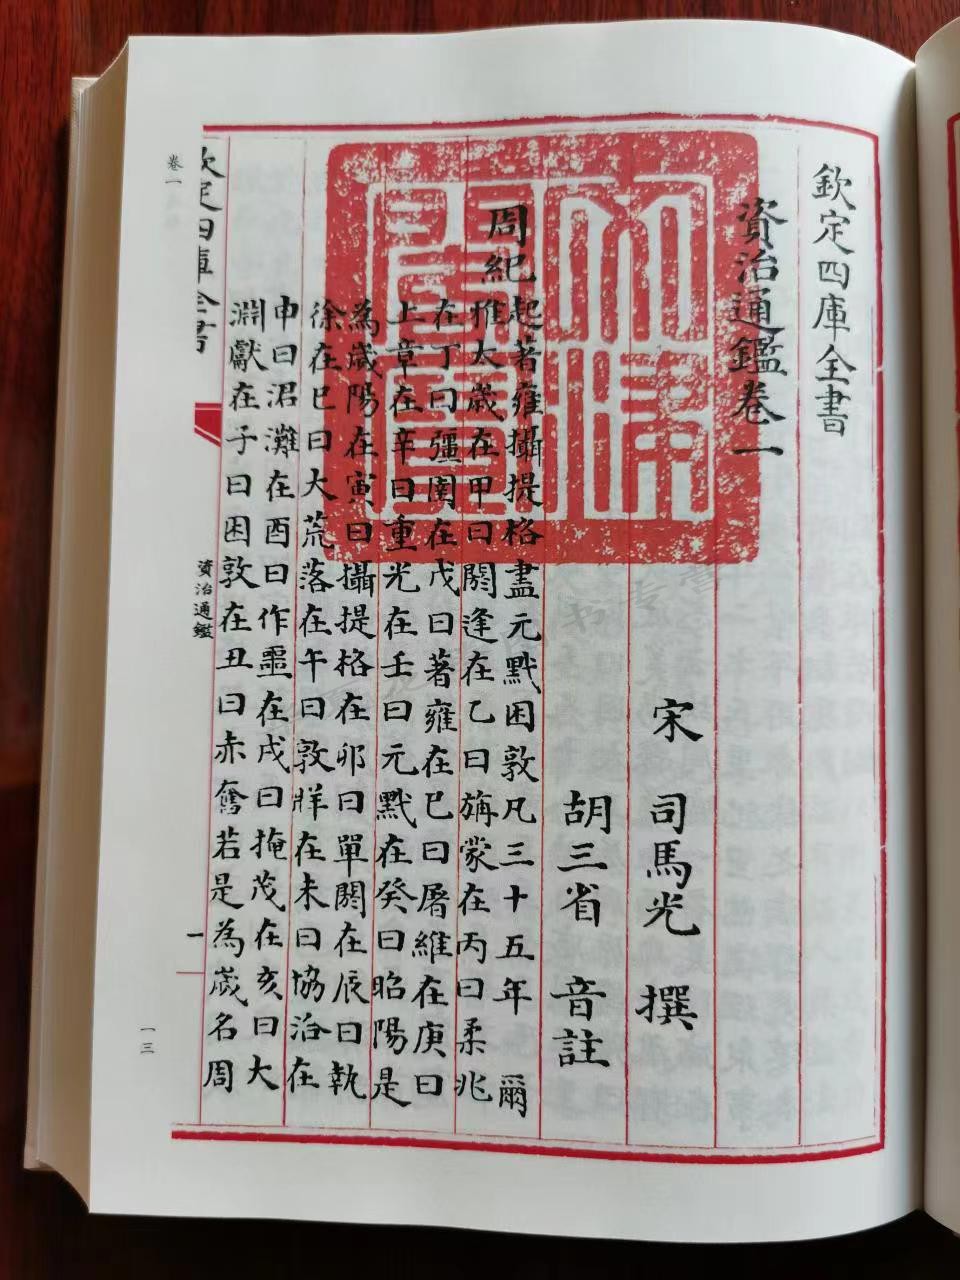 欽定四庫全書
資治通鑑卷一
宋 司馬光 撰
胡三省 音註
周紀
起著雍攝提格盡元黓困敦凡三十五年 爾
雅太歲在甲曰閼逢在乙曰旃蒙在丙曰柔兆
在丁曰彊圉在戊曰著雍在已曰屠維在庚曰
上章在辛曰重光在壬曰元黓在癸曰昭陽是
為歲陽在寅曰攝提格在卯曰單閼在辰曰執
徐在巳曰大荒落在午曰敦牂在未曰協洽在
申曰涒灘在酉曰作噩在戌曰掩茂在亥曰大
淵獻在子曰困敦在丑曰赤奮若是為歲名周
文淵閣寶
欽定四庫全書
資治通鑑
一
卷一
一三